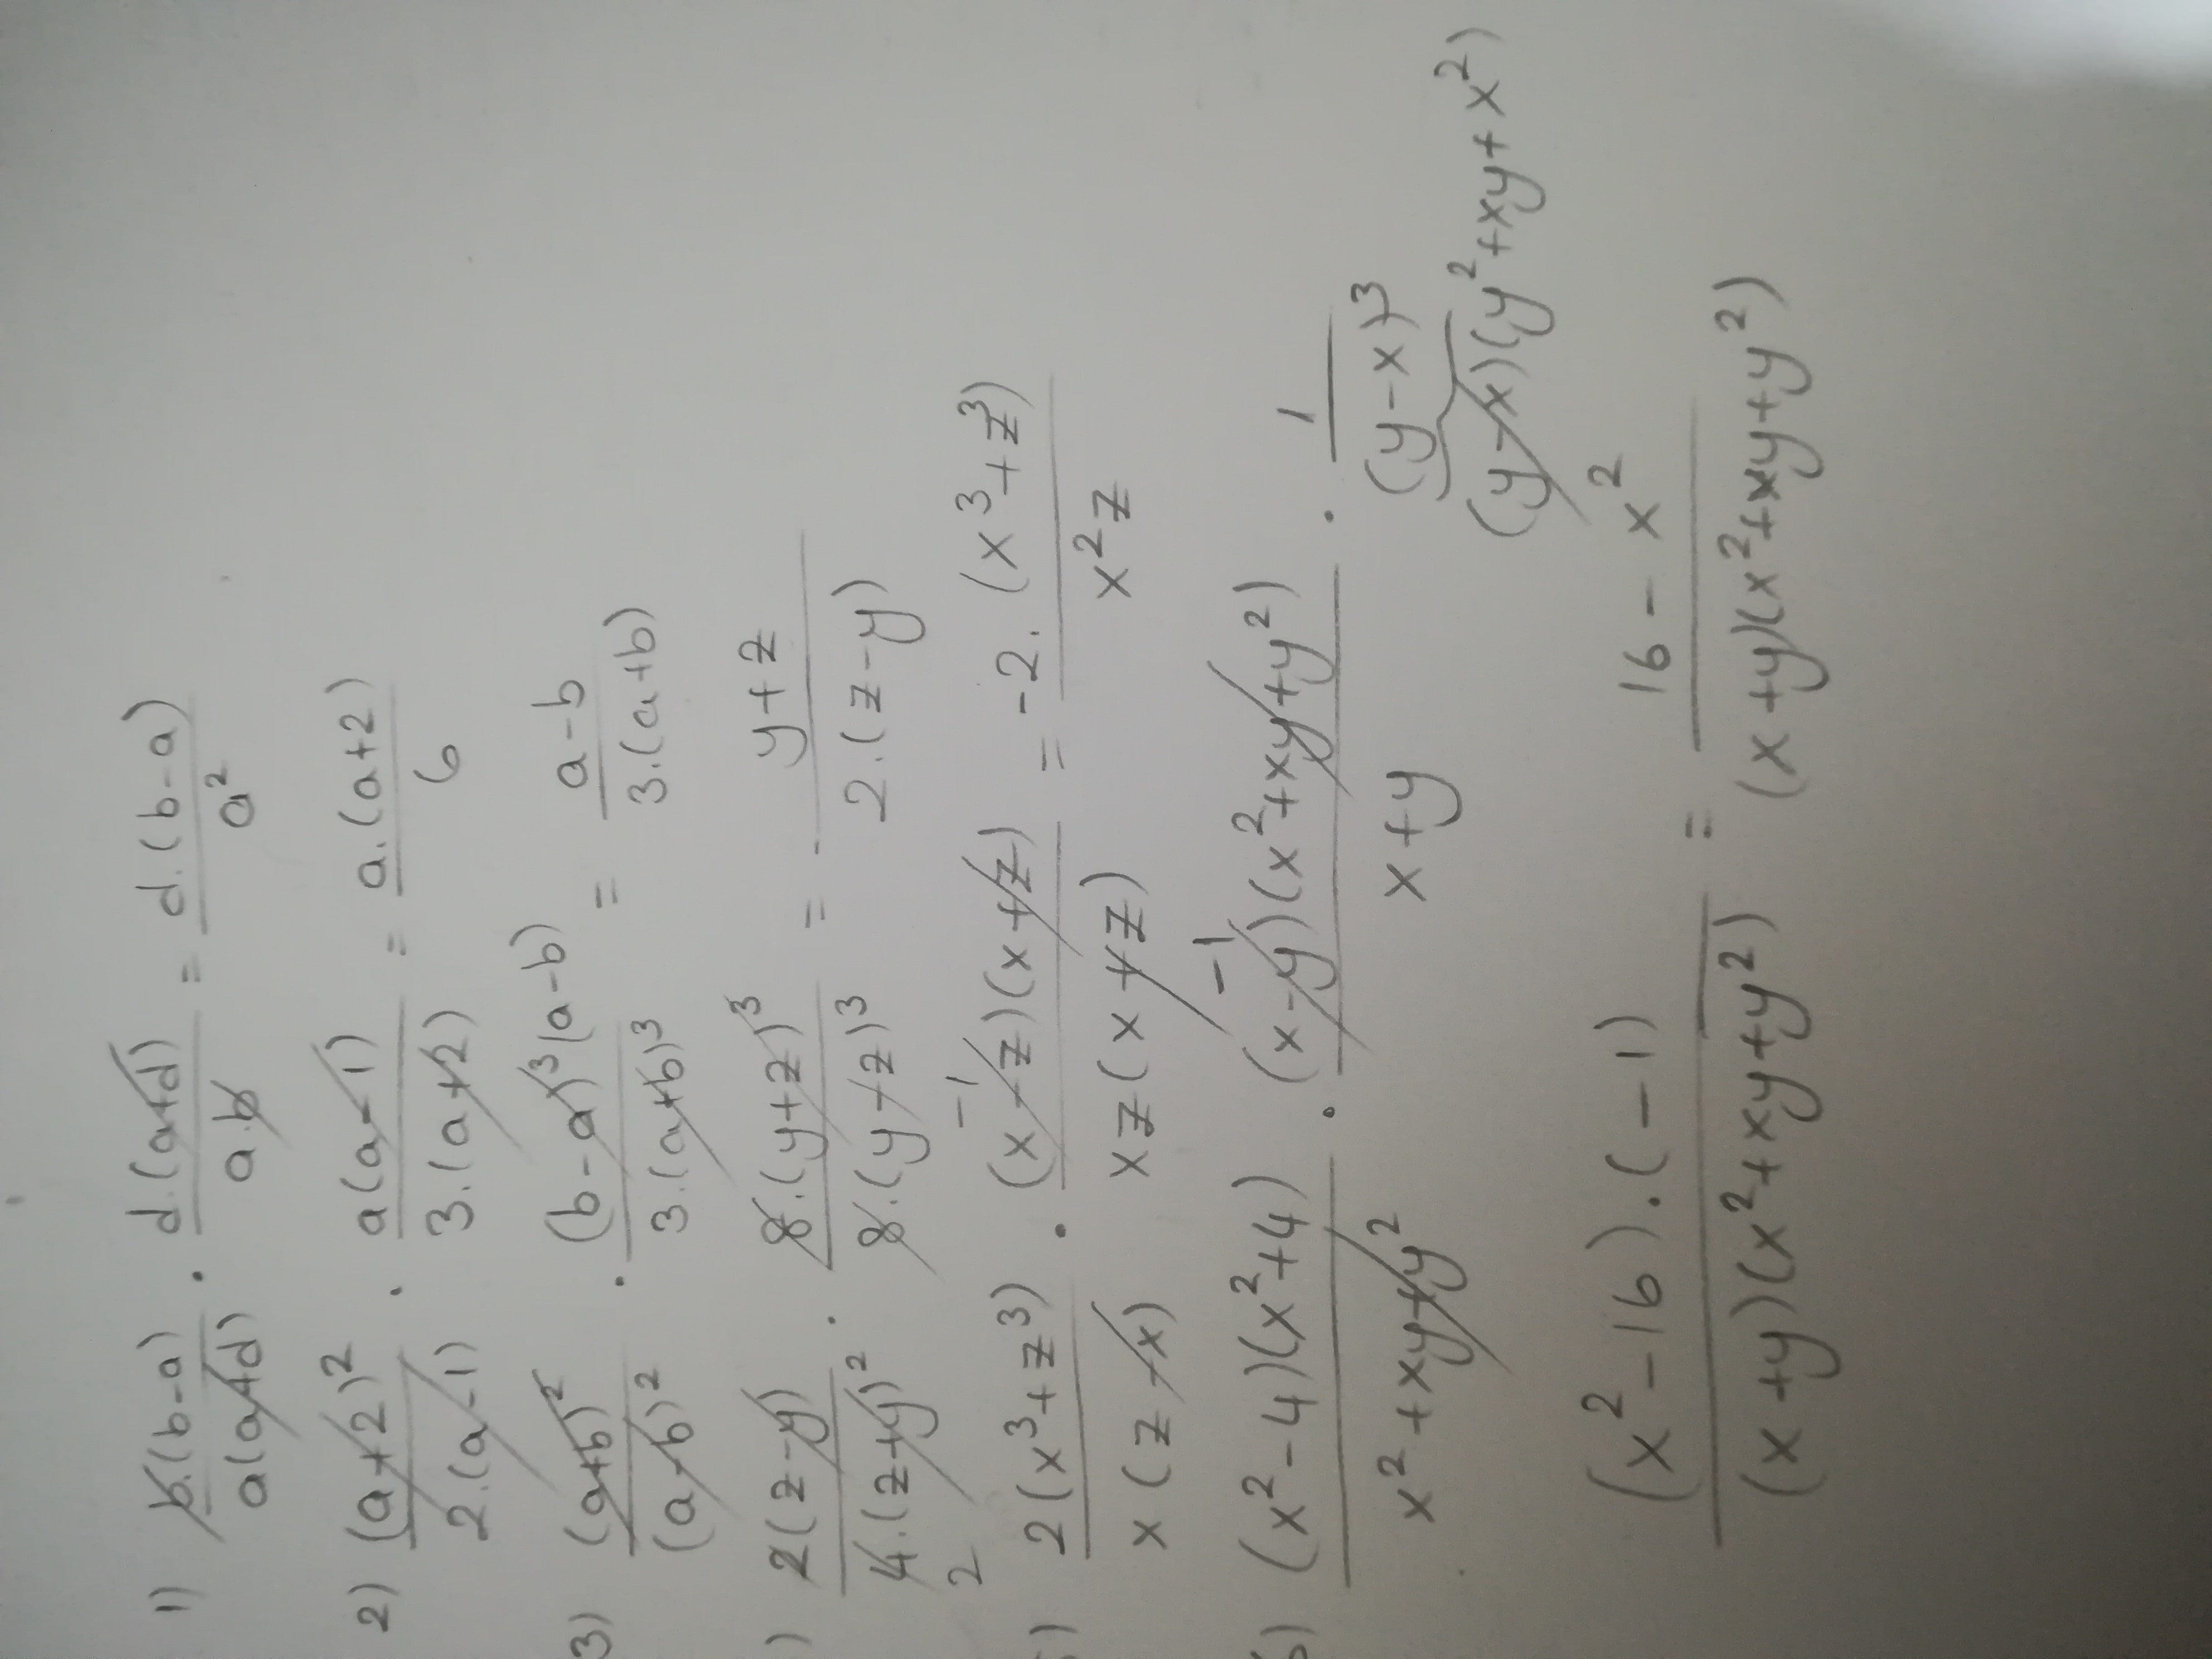 1) b.(b-a)/a(a+d) · d.(a+d)/a.b = d.(b-a)/a²
2) (a+2)²/2.(a-1) · a(a-1)/3.(a+2) = a.(a+2)/6
3) (a+b)²/(a-b)² · (b-a)³(a-b)/3.(a+b)³ = a-b/3.(a+b)
) 2(z-y)/4.(z+y)² · 8.(y+z)³/8.(y-z)³ = - y+z/2.(z-y)
2
-1
) 2(x³+z³)/x(z-x) · (x-z)(x+z)/xz(x+z) = -2.(x³+z³)/x²z
-1
) (x²-4)(x²+4)/x²+xy+y² · (x-y)(x²+xy+y²)/x+y · 1/(y-x)³
(y-x)(y²+xy+x²)
(x²-16).(-1)/(x+y)(x²+xy+y²) = 16-x²/(x+y)(x²+xy+y²)